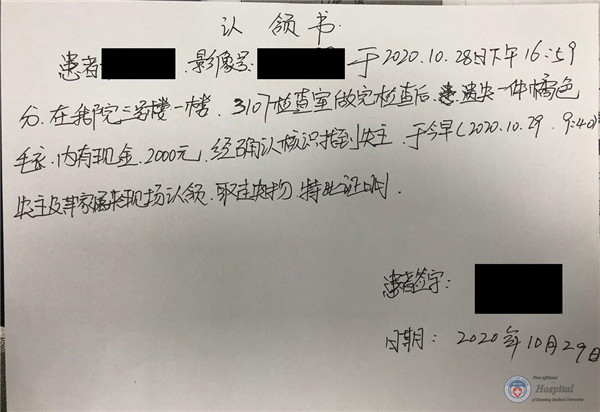 认领书.
患者 影像号: 于2020.10.28日下午16:59
分.在我院二号楼一楼.3107检查室做完检查后,遗失一件橘色
毛衣.内有现金.2000元.经确认核识找到失主.于今早(2020.10.29.9:40)
失主及其家属来现场认领.取走失物.特此证明.
患者签字:
日期: 2020年10月29日
First Affiliated
Hospital
of Kunming Medical University